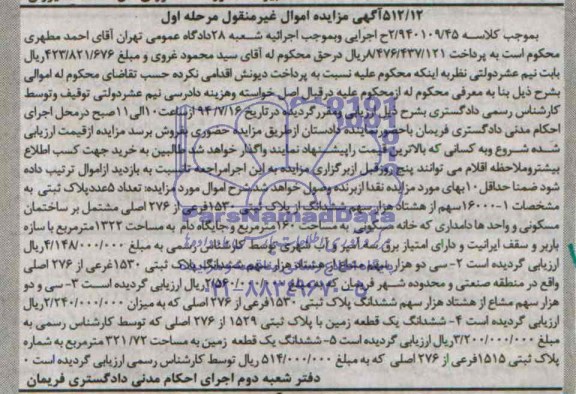 ۵۱۲/۱۲آگهی مزایده اموال غیرمنقول مرحله اول
بموجب کلاسه ۲/۹۴۰۱۰۹/۴۵ح اجرایی وبموجب اجرائیه شعبه ۲۸دادگاه عمومی تهران آقای احمد مطهری
محکوم است به پرداخت ۸/۴۷۶/۴۳۷/۱۲۱ریال درحق محکوم له آقای سید محمود غروی و مبلغ ۴۲۳/۸۲۱/۶۷۶ریال
بابت نیم عشردولتی نظربه اینکه محکوم علیه نسبت به پرداخت دیونش اقدامی نکرده حسب تقاضای محکوم له اموالی
بشرح ذیل بنا به معرفی محکوم له ازمحکوم علیه درقبال اصل خواسته وهزینه دادرسی نیم عشردولتی توقیف وتوسط
کارشناس رسمی دادگستری بشرح ذیل ارزیابی ومقررگردیده درتاریخ ۹۴/۷/۱۶ازساعت۱۰الی۱۱صبح درمحل اجرای
احکام مدنی دادگستری فریمان باحضورنماینده دادستان ازطریق مزایده حضوری بفروش برسد مزایده ازقیمت ارزیابی
شده شروع وبه کسانی که بالاترین قیمت راپیشنهاد نمایند واگذار خواهد شد طالبین به خرید جهت کسب اطلاع
بیشتروملاحظه اقلام می توانند پنج روزقبل ازبرگزاری مزایده به این اجرامراجعه تانسبت به بازدید ازاموال ترتیب داده
شود ضمنا حداقل ۱۰بهای مورد مزایده نقدا ازبرنده وصول خواهد شد.شرح اموال مورد مزایده: تعداد ۵عددپلاک ثبتی به
مشخصات ۱-۱۶۰۰۰سهم از هشتاد هزار سهم ششدانگ از پلاک ثبتی ۱۵۳۰فرعی از ۲۷۶ اصلی مشتمل بر ساختمان
مسکونی و واحد ها دامداری که خانه مسکونی به مساحت ۱۶۰مترمربع و جایگاه دام به مساحت ۱۳۲۲مترمربع با سازه
باربر و سقف ایرانیت و دارای امتیاز برق سه فاز و آب شهری توسط کارشناس رسمی به مبلغ ۴/۱۴۸/۰۰۰/۰۰۰ریال
ارزیابی گردیده است ۲-سی دو هزار سهم مشاع از هشتاد هزار سهم ششدانگ پلاک ثبتی ۱۵۳۰غرعی از ۲۷۶ اصلی
واقع در منطقه صنعتی و محدوده شهر فریمان که به مبلغ ریال ارزیابی گردیده است ۳-سی و دو
هزار سهم مشاع از هشتاد هزار سهم ششدانگ پلاک ثبتی ۱۵۳۰فرعی از ۲۷۶ اصلی که به میزان ۲/۲۴۰/۰۰۰/۰۰۰ریال
ارزیابی گردیده است ۴- ششدانگ یک قطعه زمین با پلاک ثبتی ۱۵۲۹ از ۲۷۶ اصلی که توسط کارشناس رسمی به
مبلغ ۳/۲۰۰/۰۰۰/۰۰۰ریال ارزیابی گردیده است ۵-ششدانگ یک قطعه زمین به مساحت ۳۲۱/۷۲ مترمربع به شماره
پلاک ثبتی ۱۵۱۵فرعی از ۲۷۶ اصلی که به مبلغ ۵۱۴/۰۰۰/۰۰۰ ریال توسط کارشناس رسمی ارزیابی گردیده است ۰
دفتر شعبه دوم اجرای احکام مدنی دادگستری فریمان
ParsNamadData